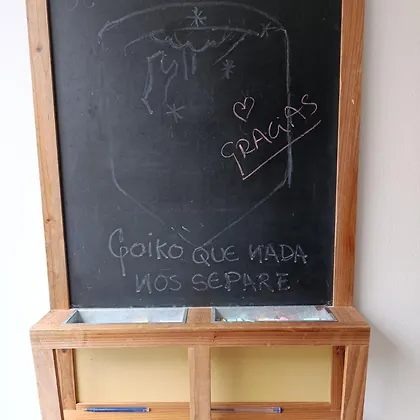 GRACIAS
Goiko QUE NADA
NOS SEPARE